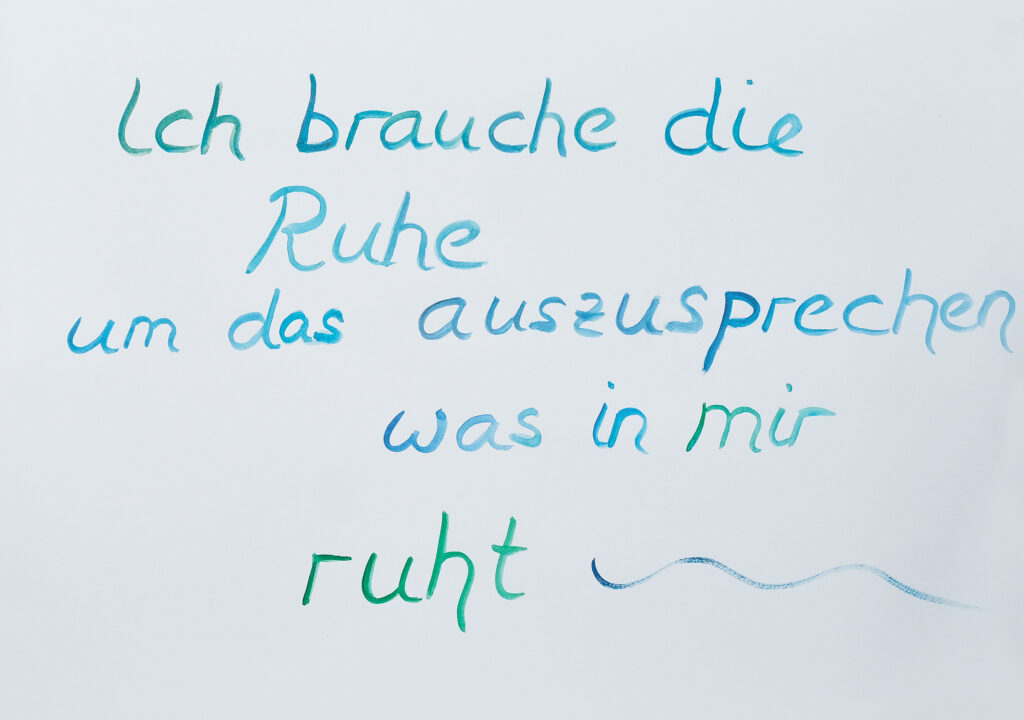 Ich brauche die
Ruhe
um das auszusprechen
was in mir
ruht